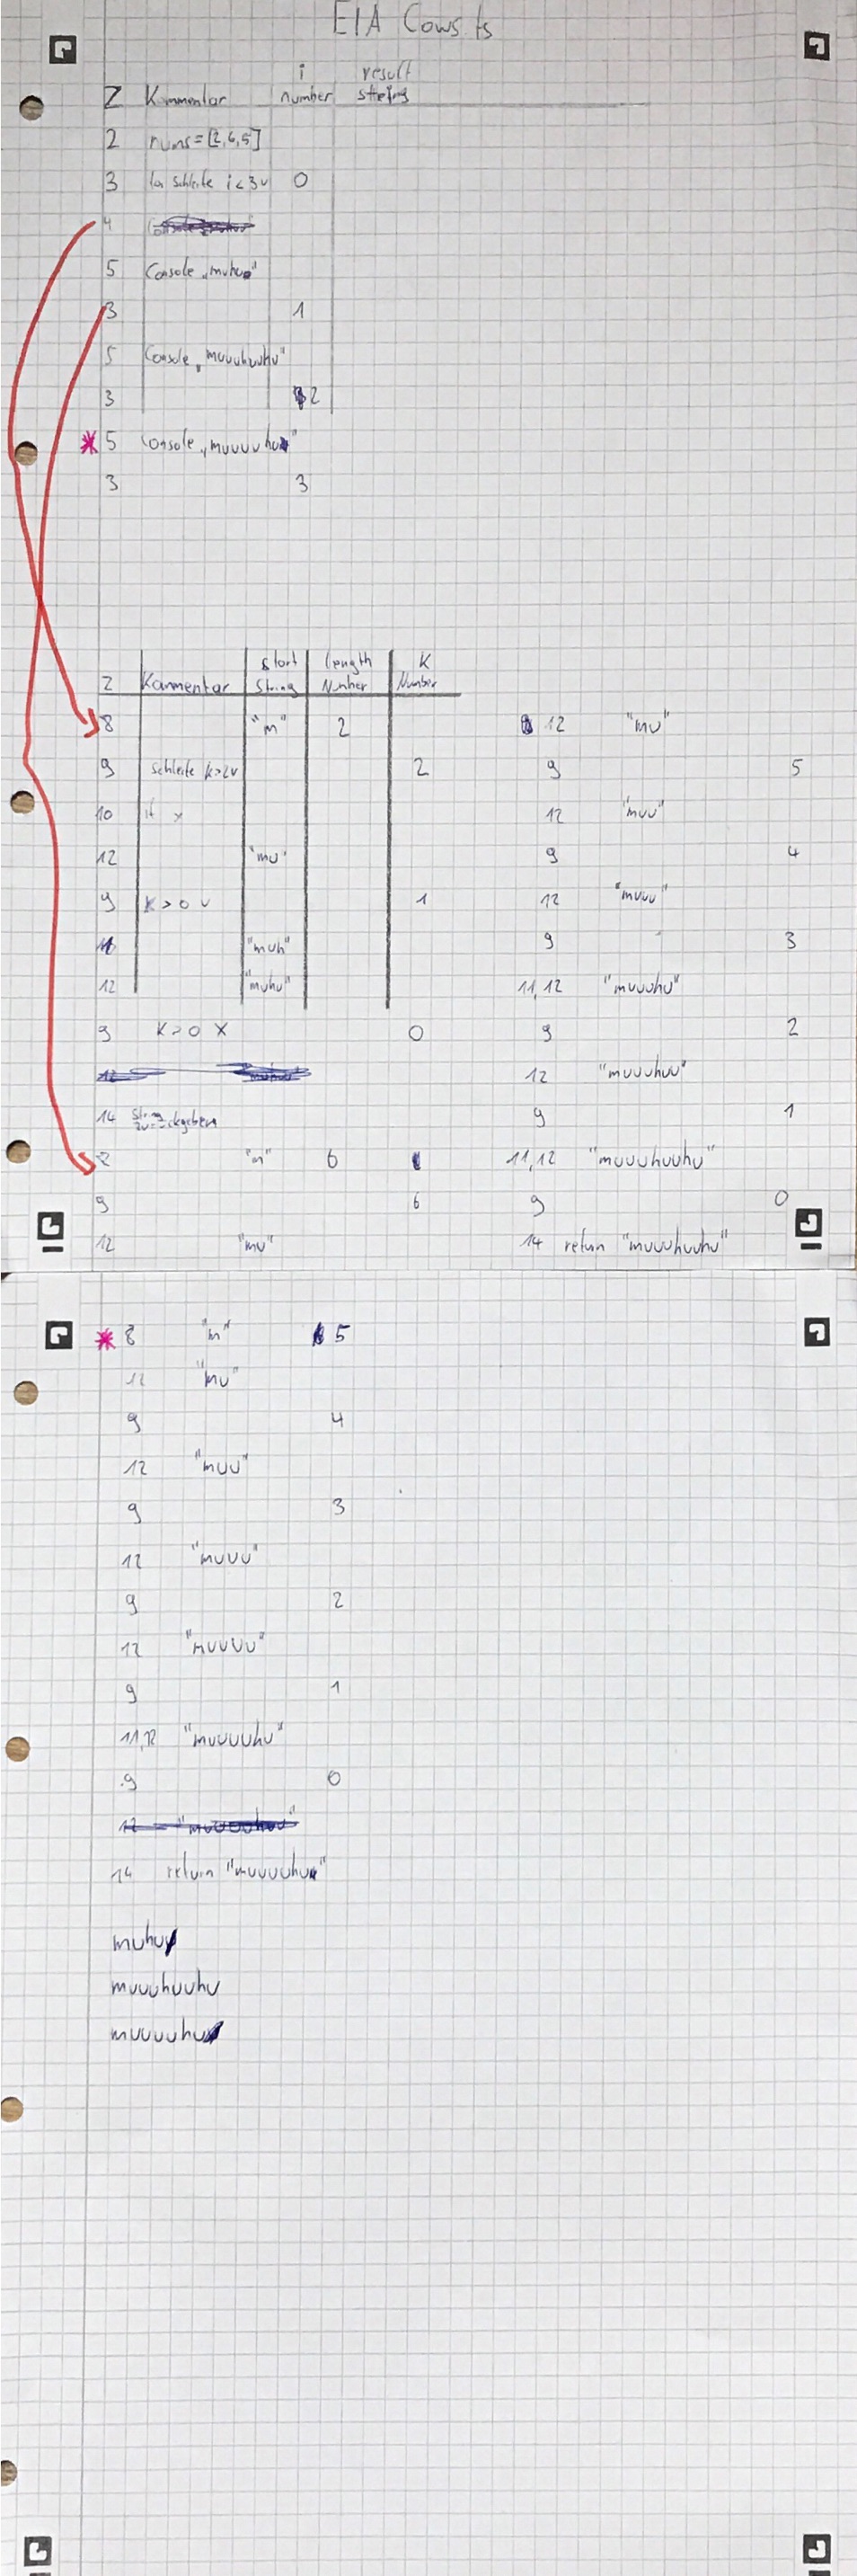 EIA Cows.ts
i result
Z Kommentar number string
2 nums=[2,6,5]
3 for schleife i<3 v 0
4
5 Console „muhu"
3 1
5 Console „muuuhuuhu"
3 2
* 5 Console „muuuuhu"
3 3
start length K
Z Kommentar String Number Number
8 "m" 2
9 Schleife k>2v 2
10 if x
12 "mu"
9 K>0 v 1
11 "muh"
12 "muhu"
9 K>0 X 0
14 String zurückgeben
"m" 6
9 6
12 "mu"
12 "mu"
9 5
12 "muu"
9 4
12 "muuu"
9 3
11,12 "muuuhu"
9 2
12 "muuuhuu"
9 1
11,12 "muuuhuuhu"
9 0
14 return "muuuhuuhu"
* 8 "m" 5
12 "mu"
9 4
12 "muu"
9 3
12 "muuu"
9 2
12 "muuuu"
9 1
11,12 "muuuuhu"
9 0
14 return "muuuuhu"
muhu
muuuhuuhu
muuuuhu